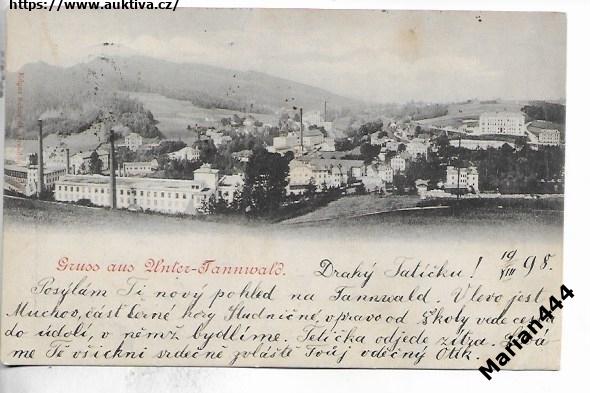 https://www.auktiva.cz/
Gruss aus Unter-Tannwald.
Drahý Tatíčku! 19/VIII 98.
Posýlám Ti nový pohled na Tannwald. V levo jest
Muchov, část černé hory Studničné, v pravo od školy vede cesta
do údolí, v němž bydlíme. Tetička odjede zítra. Líbá
me Tě všichni srdečně zvláště Tvůj vděčný Otík.
Marian444